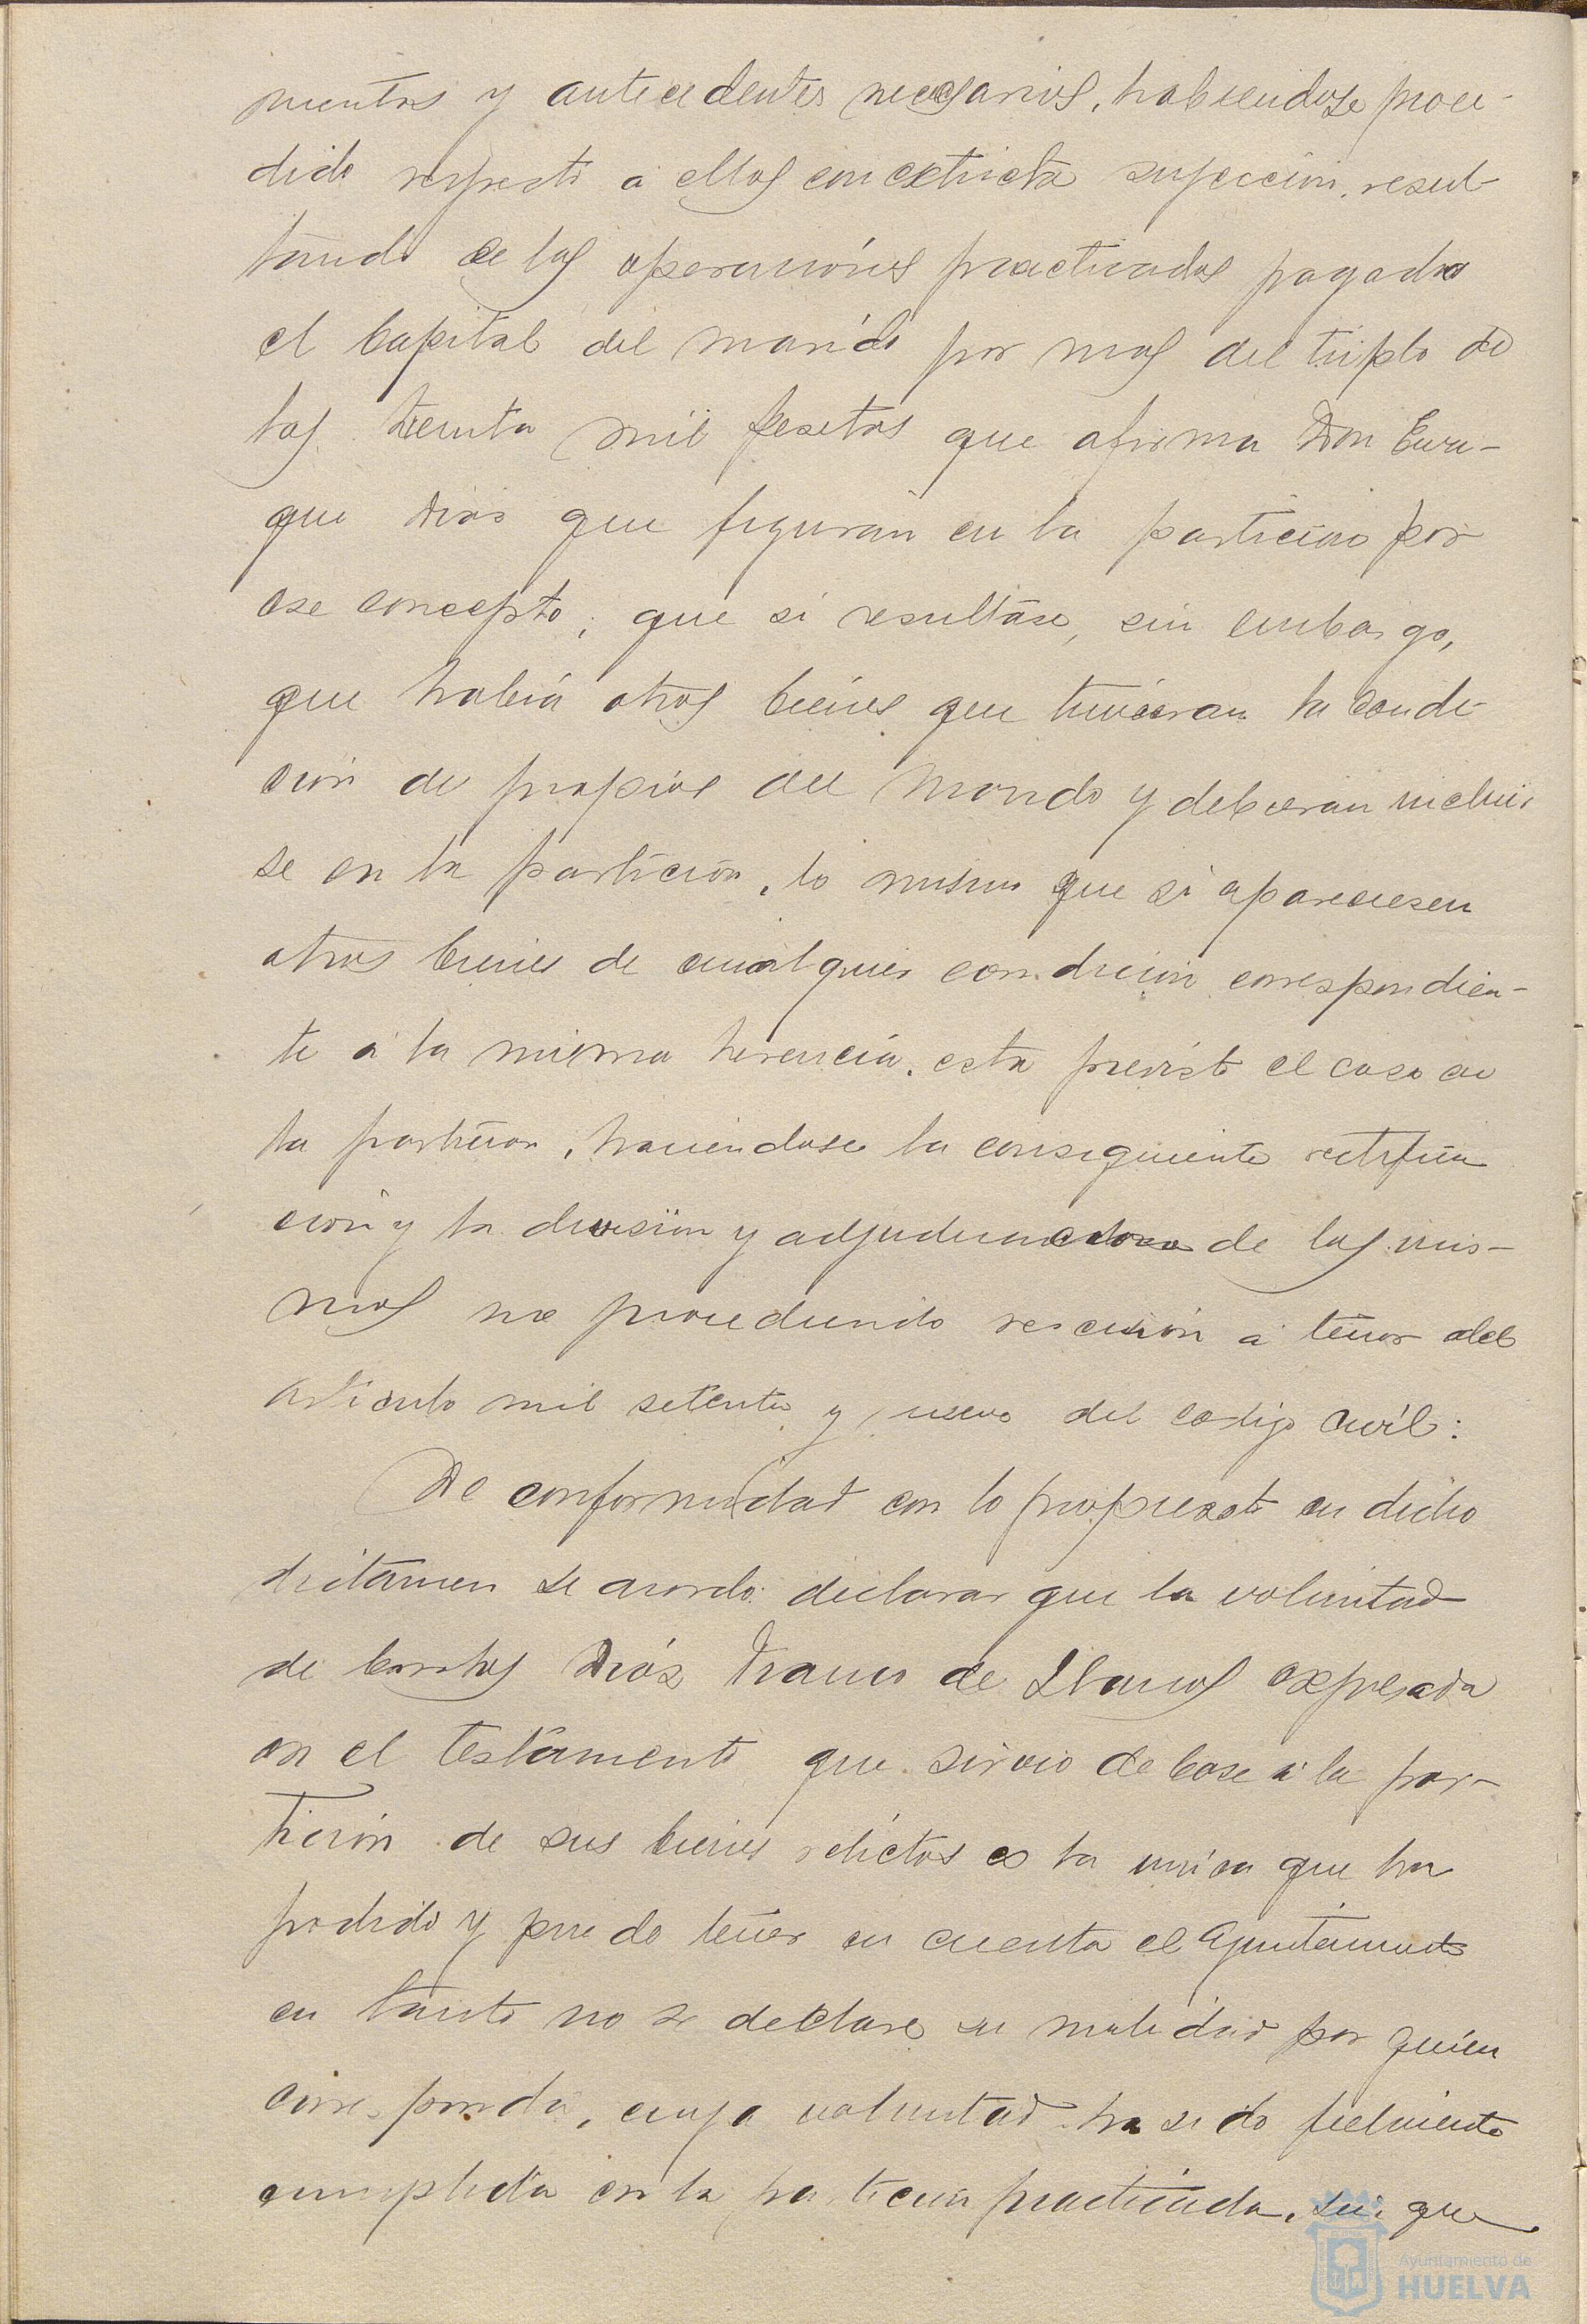 mentos y antecedentes necesarios, habiendose proce-
dido respecto á ellos con extricta sujeccion, resul-
tando de las operaciónes practicadas pagado
el capital del marido por mas del triplo de
las treinta mil pesetas que afirma Don Enri-
que Dias que figuran en la particion por
ese concepto; que si resultase, sin embargo,
que había otros bienes que tuvieran la condi-
ción de propios del marido y debieran incluir
se en la partición, lo mismo que si apareciesen
otros bienes de cualquier condicion correspondien-
te á la misma herencia, esta previsto el caso en
la particion, haciendose la consiguiente rectifica
cion y la division y adjudicacion de los mis-
mos no procediendo rescisión á tenor del
articulo mil setenta y nueve del codigo civil:
De conformidad con lo propuesto en dicho
dictamen se acordo: declarar que la voluntad
de Carlos Diáz Franco de Llanos expresada
en el testamento que sirvio de base á la par-
tición de sus bienes relictos es la unica que ha
podido y puede tener en cuenta el Ayuntamiento
en tanto no se declare su nulidad por quien
corresponda, cuya voluntad ha sido fielmente
cumplida en la particion practicada, sin que
Ayuntamiento de
HUELVA